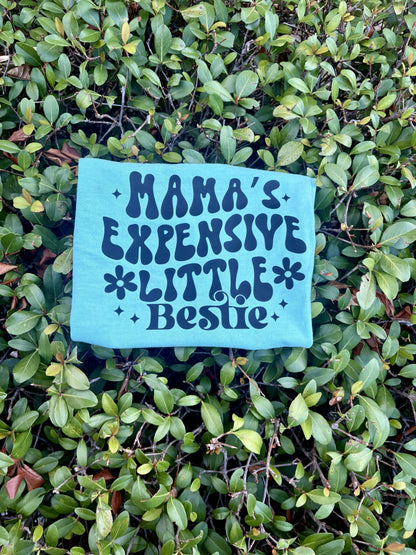 MAMA'S
EXPENSIVE
LITTLE
Bestie